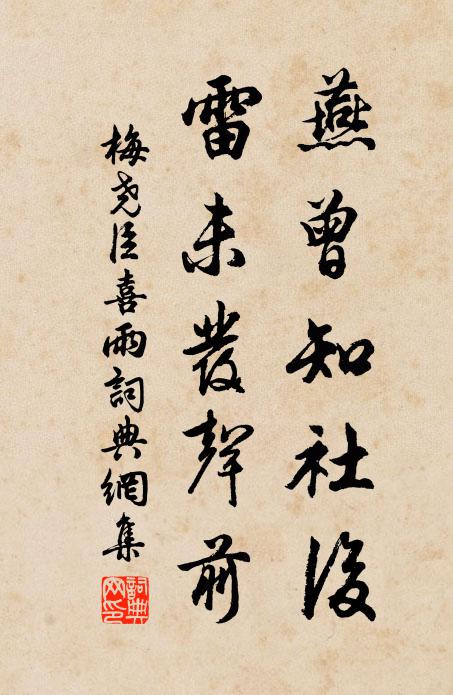 燕曾知社後
雷未發聲前
梅堯臣喜雨詞典網集
詞典網印